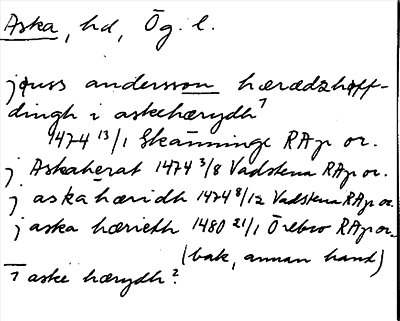 Aska, hd, Ög. l.
jquss andersson hærædzhøff-
dingh i askehærydh?
1474 13/1 Skänninge RAp or.
j Askaherat 1474 3/8 Vadstena RAp or.
j aska häridh 1474 8/12 Vadstena RAp or.
j aska hærieth 1480 21/1 Örebro RAp or.
(bak, annan hand)
i aske hærydh?